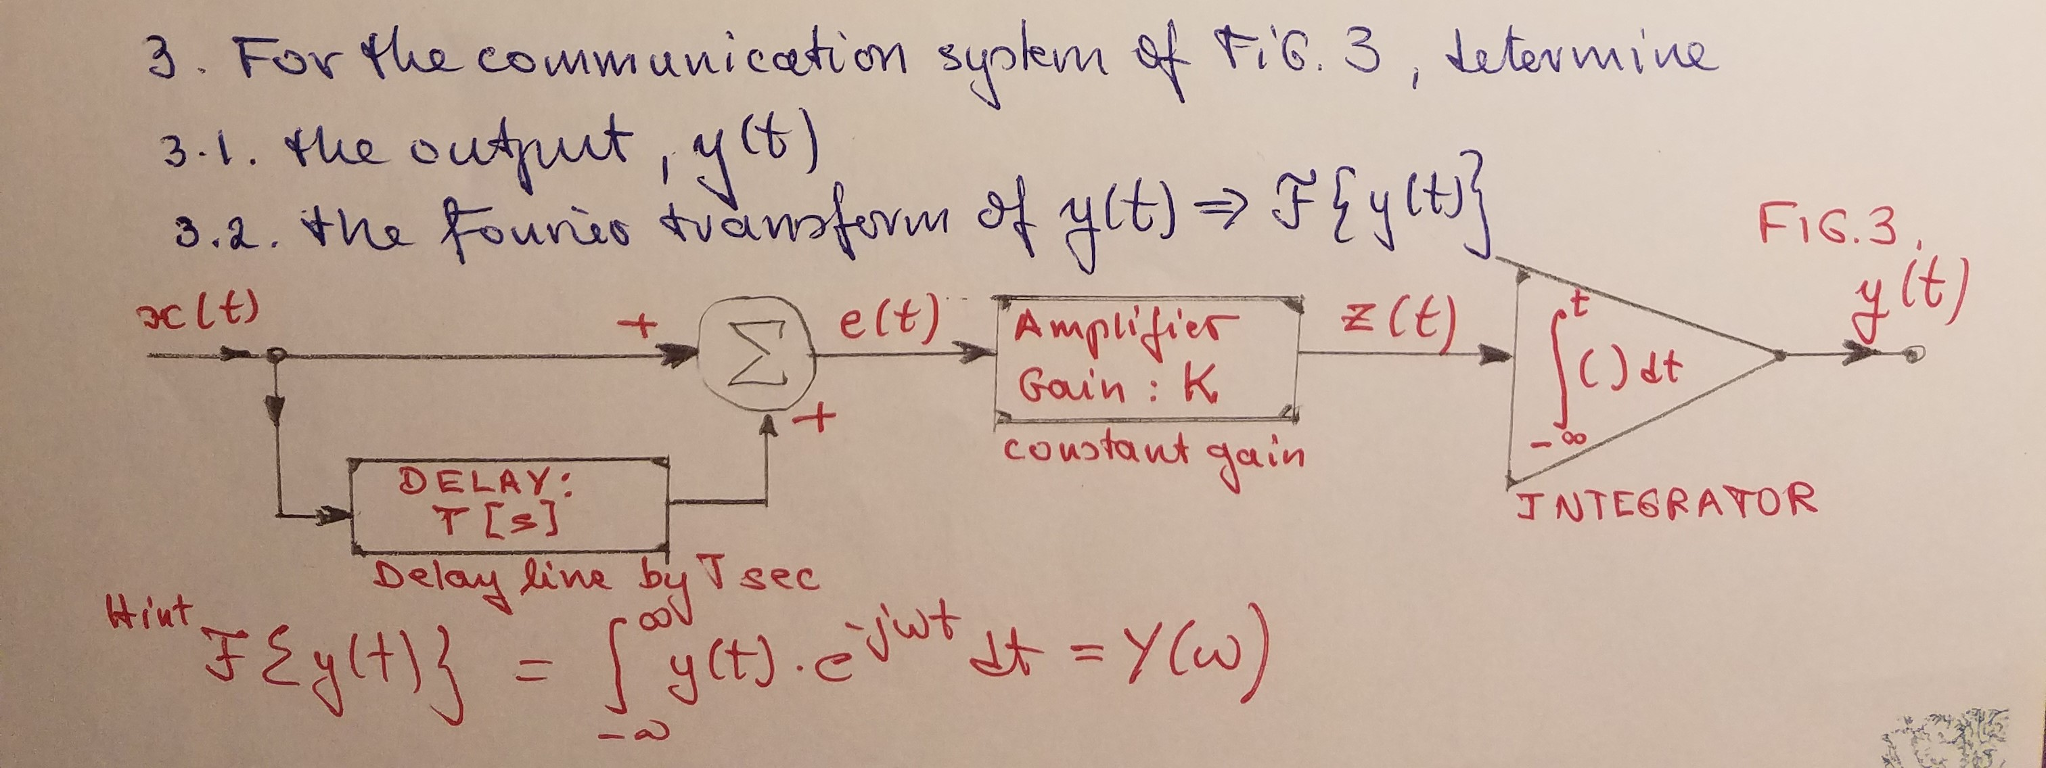 3. For the communication system of FiG. 3, determine
3.1. the output, y(t)
3.2. the Fourier transform of y(t) ⇒ F{y(t)}
FIG.3.
x(t)
+
Σ
+
e(t)
Amplifier
Gain : K
constant gain
z(t)
∫_{-∞}^{t} ( ) dt
INTEGRATOR
y(t)
DELAY:
T [s]
Delay line by T sec
Hint
F{y(t)} = ∫_{-∞}^{∞} y(t) · e^{-jωt} dt = Y(ω)